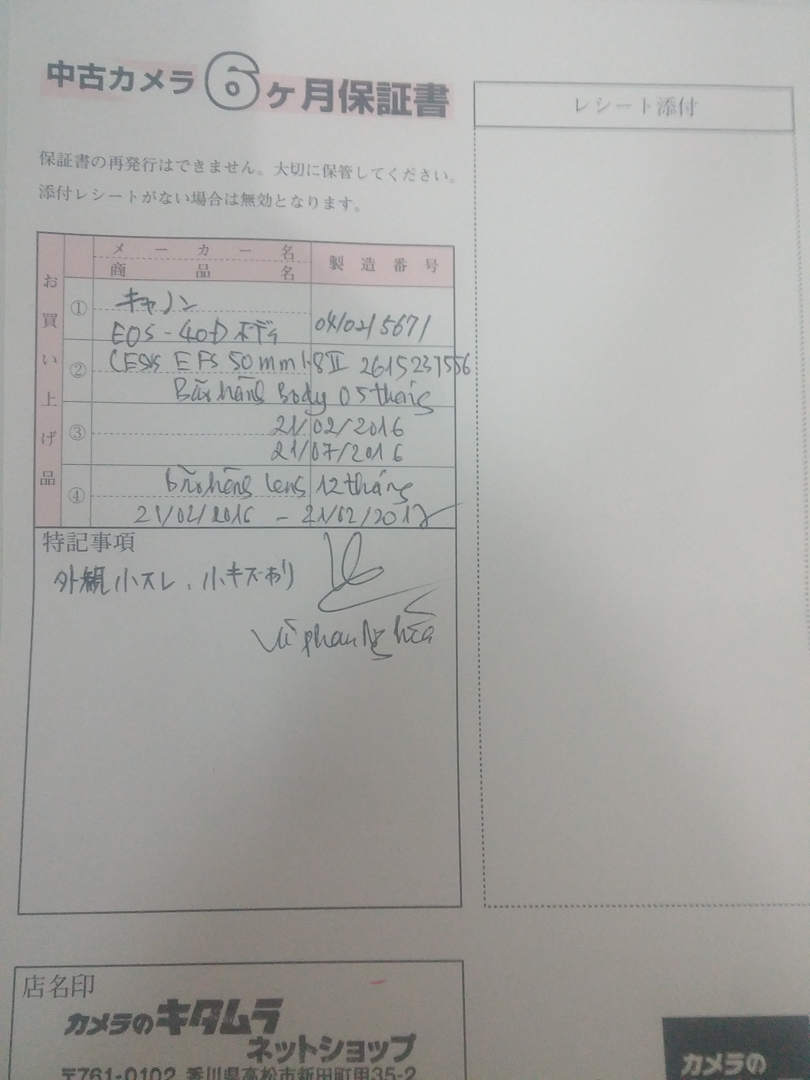 中古カメラ6ヶ月保証書
保証書の再発行はできません。大切に保管してください。
添付レシートがない場合は無効となります。
レシート添付
お買い上げ品
メーカー名
商品名
製造番号
①
キャノン
EOS-40D ボディ
0410215671
②
EFS 50mm 1.8 II 2615237556
Bảo hành Body 05 tháng
③
21/02/2016
21/07/2016
④
Bảo hành lens 12 tháng
21/02/2016 - 21/02/2017
特記事項
外観小スレ、小キズあり
店名印
カメラのキタムラ
ネットショップ
〒761-0102 香川県高松市新田町甲35-2
カメラの